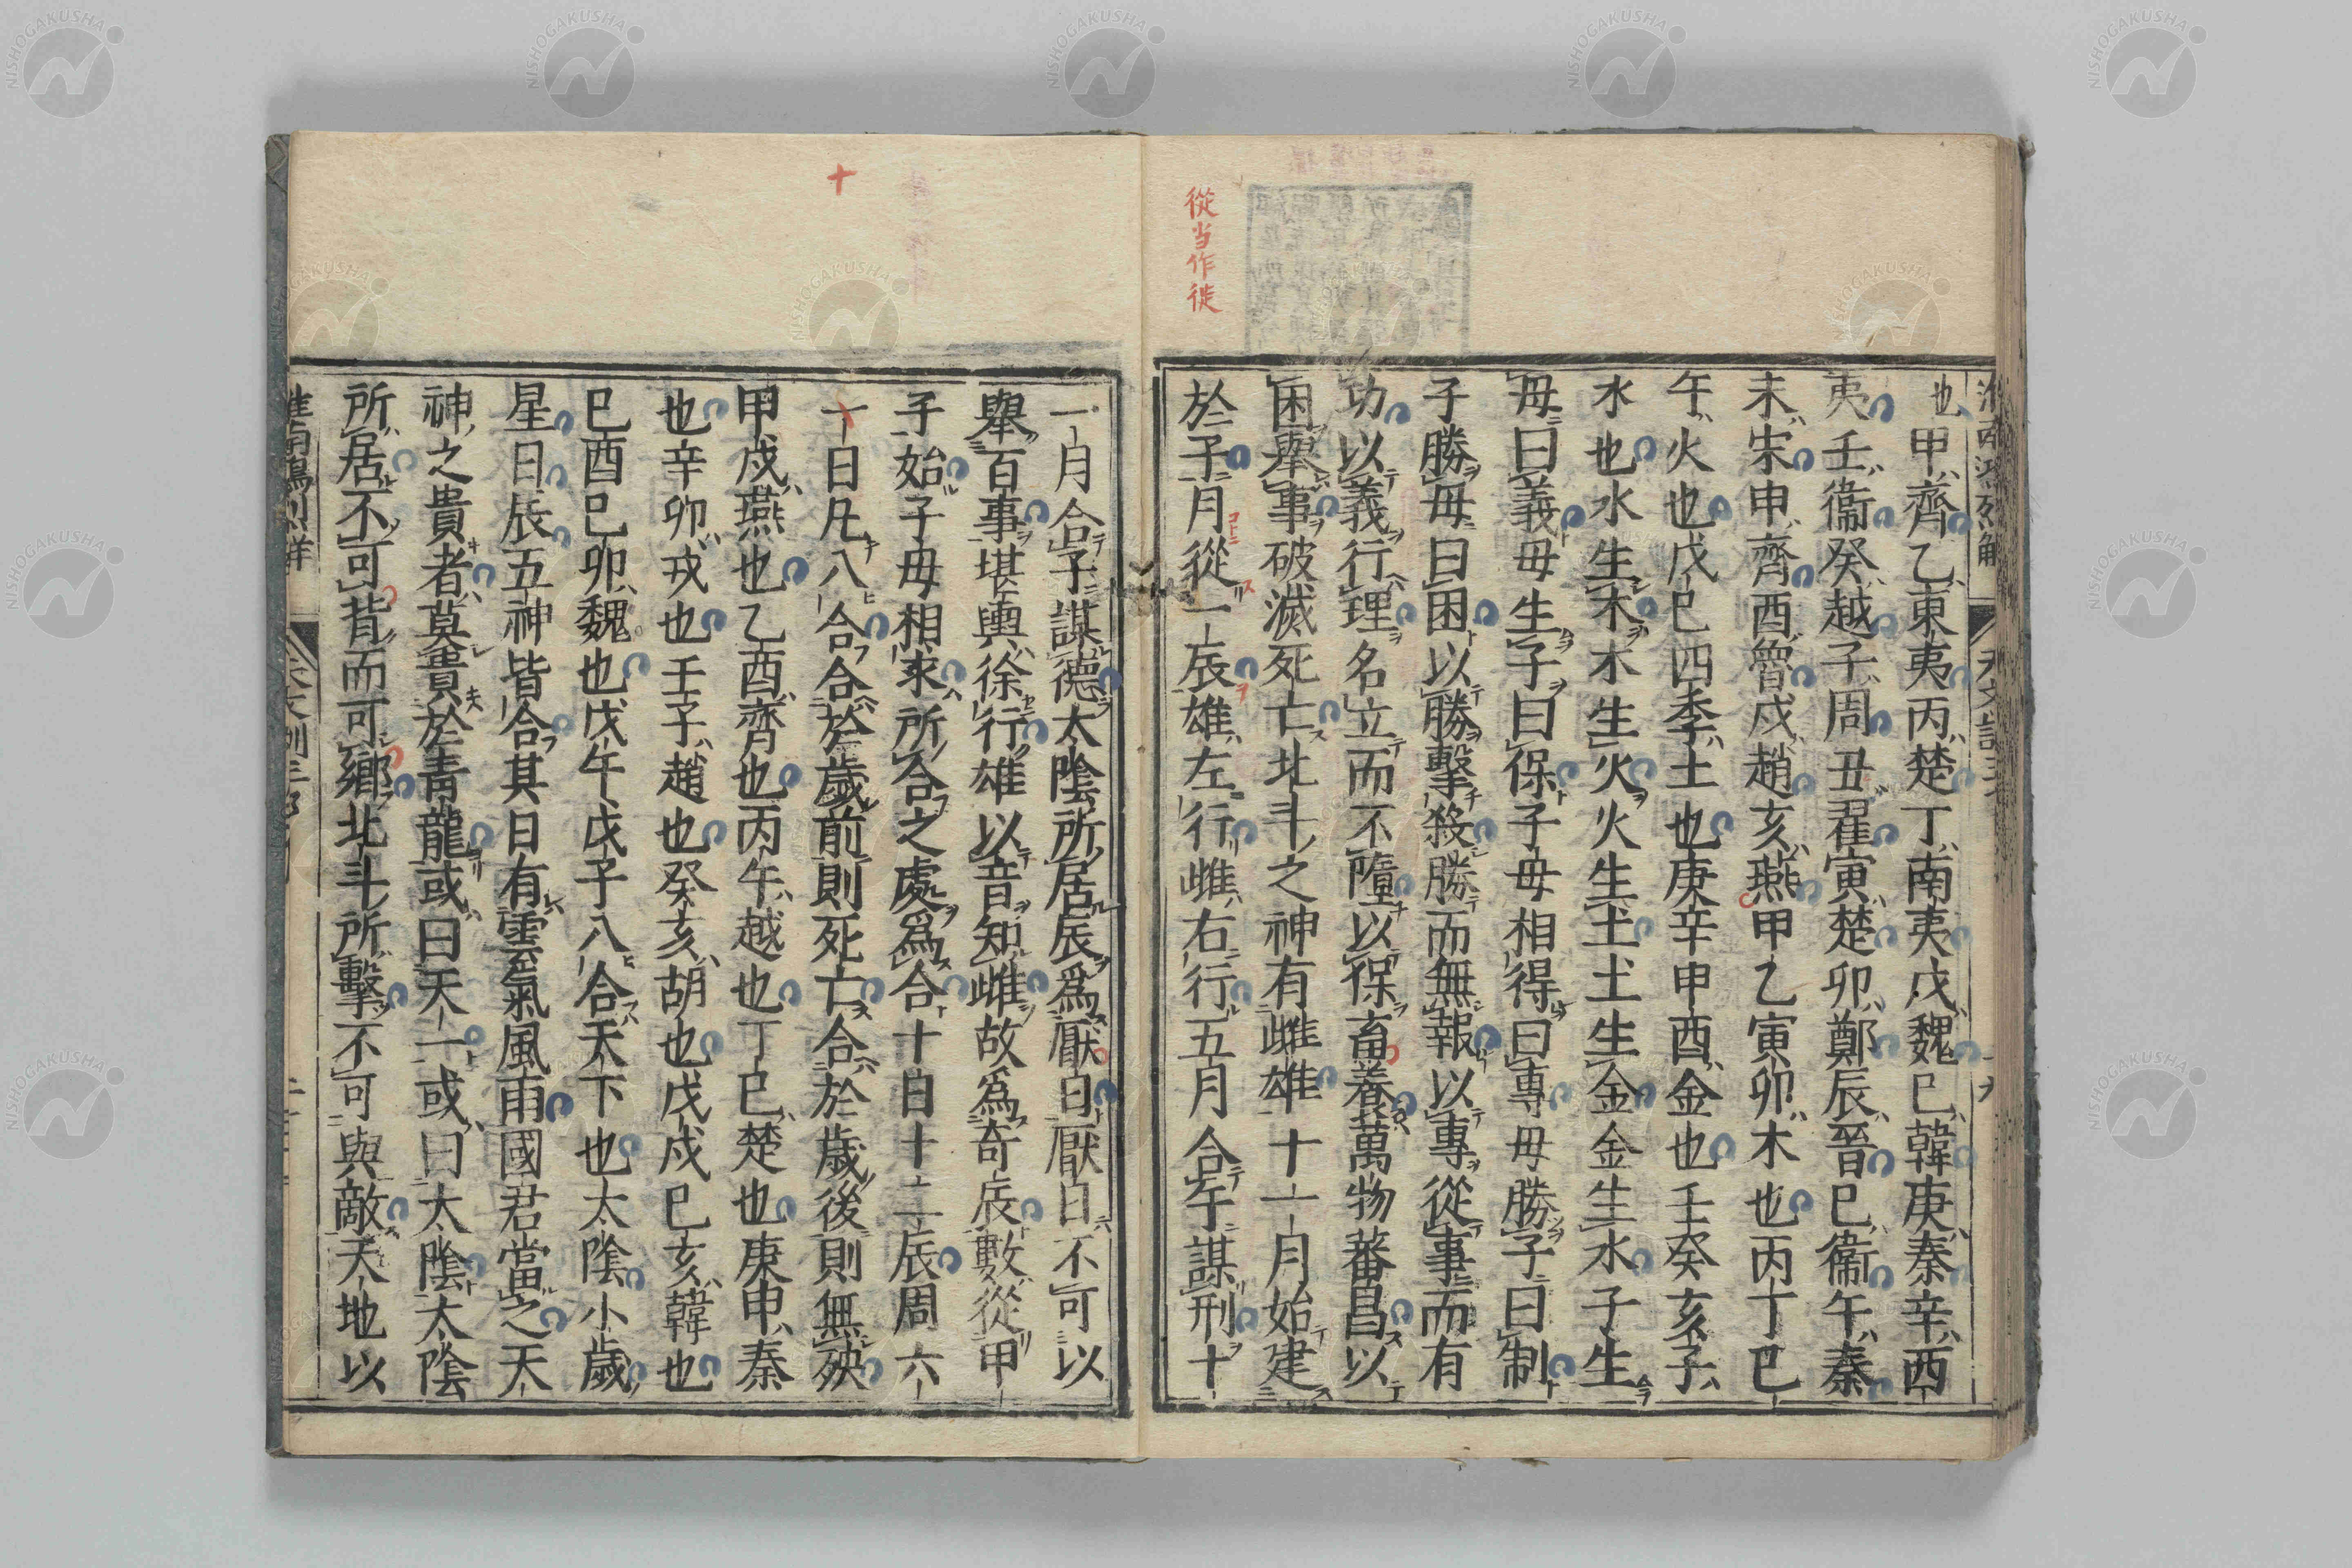 從当作徙
也甲齊乙東夷丙楚丁南夷戊魏巳韓庚秦辛西
夷壬衞癸越子周丑翟寅楚卯鄭辰晉巳衞午秦
未宋申齊酉魯戌趙亥燕甲乙寅卯木也丙丁巳
午火也戊巳四季土也庚辛申酉金也壬癸亥子
水也水生木木生火火生土土生金金生水子生
母曰義母生子曰保子母相得曰專母勝子曰制
子勝母曰困以勝擊殺勝而無報以專從事而有
功以義行理名立而不隳以保畜養萬物蕃昌以
困舉事破滅死亡北斗之神有雌雄十一月始建
於子月從一辰雄左行雌右行五月合午謀刑十
一月合子謀德太陰所居辰爲厭日厭日不可以
舉百事堪輿徐行雄以音知雌故爲奇辰數從甲
子始子母相求所合之處爲合十日十二辰周六
十日凡八合合於歲前則死亡合於歲後則無殃
甲戌燕也乙酉齊也丙午越也丁巳楚也庚申秦
也辛卯戎也壬子趙也癸亥胡也戊戌巳亥韓也
巳酉己卯魏也戊午戊子八合天下也太陰小歲
星日辰五神皆合其日有雲氣風雨國君當之天
神之貴者莫貴於青龍或曰天一或曰太陰太陰
所居不可背而可鄉北斗所擊不可與敵天地以